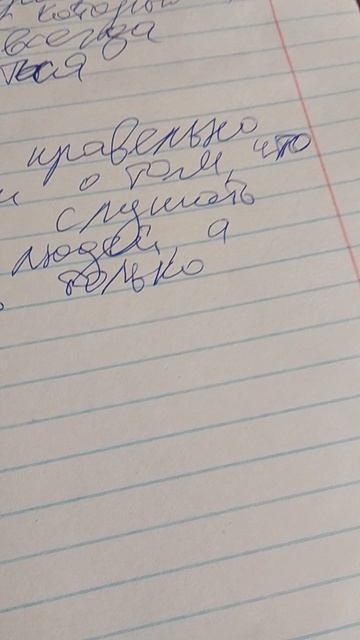 которы
всегда
ться
правельно
о том, что
слушать
людей, а
только